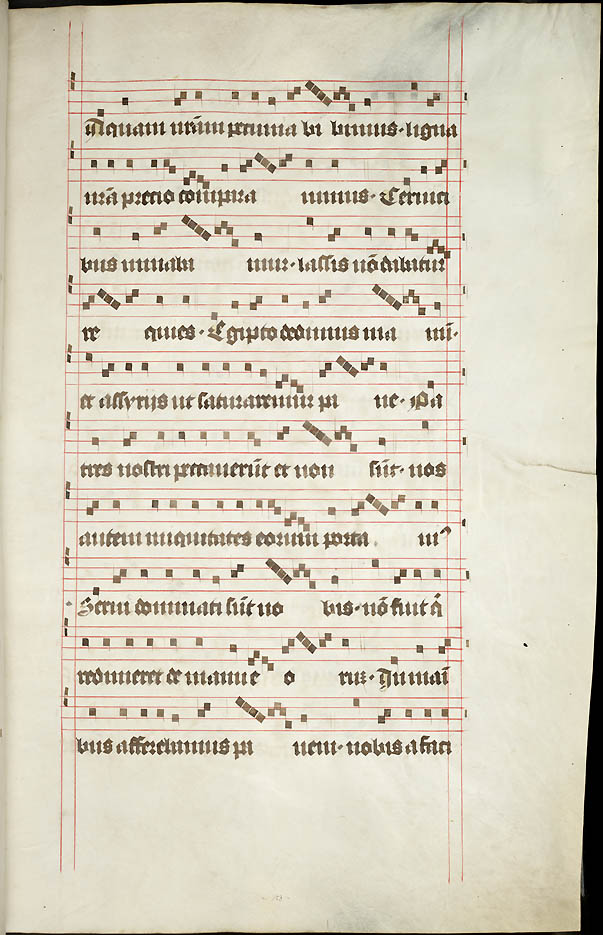 Aquam nrām peccunia bi bimus · ligna
nrā precio compara uimus · Ceruici
bus minaba mur · lassis nō dabatur
re quies · Egipto dedimus ma nū ·
et assyrijs ut saturaremur pa ne · Pa
tres nostri peccauerūt et non sūt · nos
autem iniquitates eorum porta
Serui dominati sūt no bis · nō fuit q̄
redimeret de manue o rū · In mani
bus afferebamus pa nem · nobis a faci